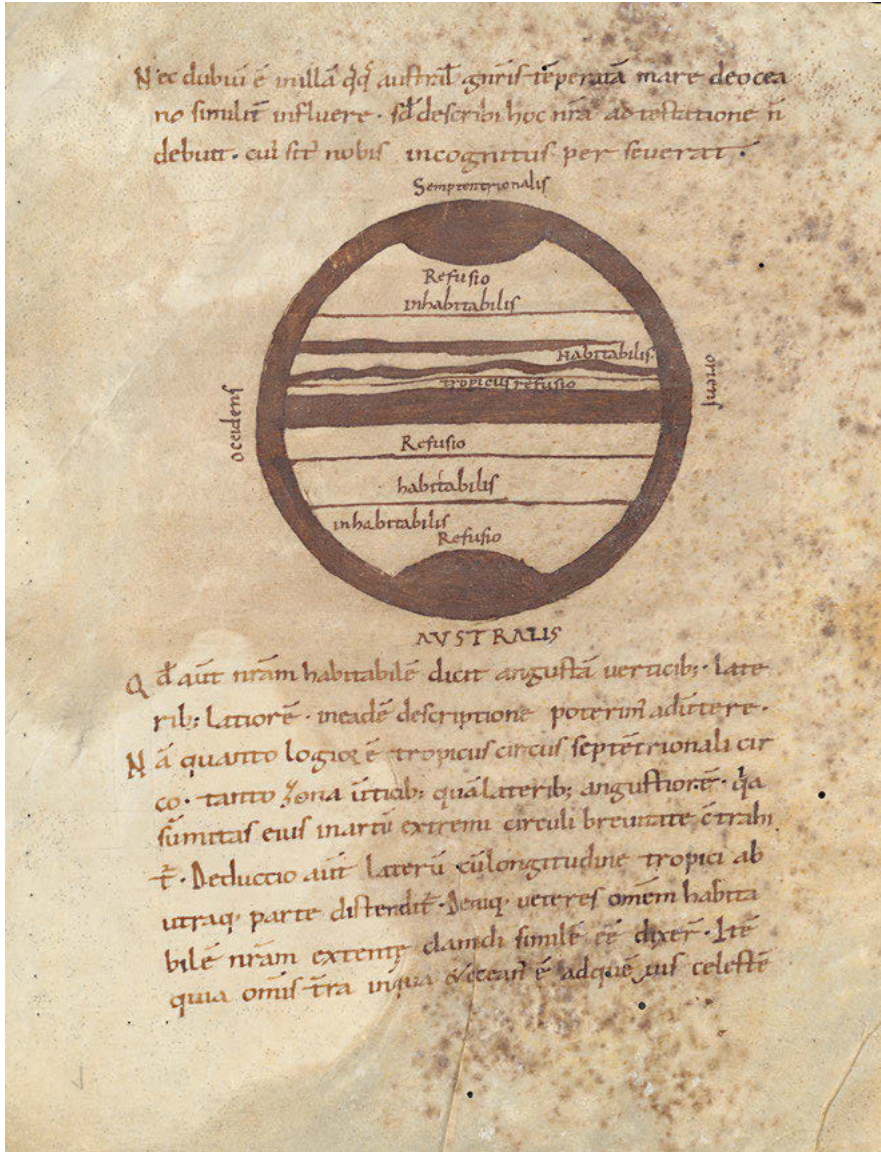 Nec dubiũ ẽ inillã q̃q̃ austral̃ gñris tẽperatã mare deocea
no similit̃ influere · sd̃ describi hoc nr̃a adtestatione ñ
debuit · cui sit̃ nobis incognitus perseverat ·
Semptentrionalis
Refusio
inhabitabilis
habitabilis
tropicus refusio
Occidens
oriens
Refusio
habitabilis
inhabitabilis
Refusio
AVSTRALIS
Qd̃ aut̃ nr̃am habitabilẽ dicit angustã verticib; · late
rib; latiorẽ · ineadẽ descriptione poterim᾽ advertere ·
Nã quanto ẽ tropicus circus septẽtrionali cir
co · tanto zona ũticib; quã laterib; angustiorẽ · q̃a
sũmitas eius inartũ extremi circuli brevitate c̃trahi
t̃ · Deductio aũt laterũ cũlongitudine tropici ab
utraq; parte distendit̃ · Deniq; veteres om̃em habita
bilẽ nr̃am extentę clamidi similẽ eẽ dixer̃ · Itẽ
quia om̃is t̃ra inqua &ocean᾽ ẽ adquẽ celestẽ